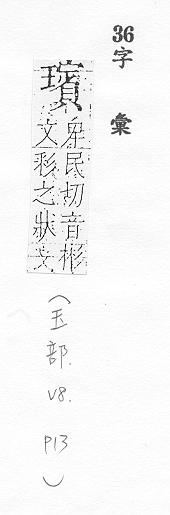 36字 彙
璸
卑民切音彬
文彩之狀
(玉部. V8. P13)